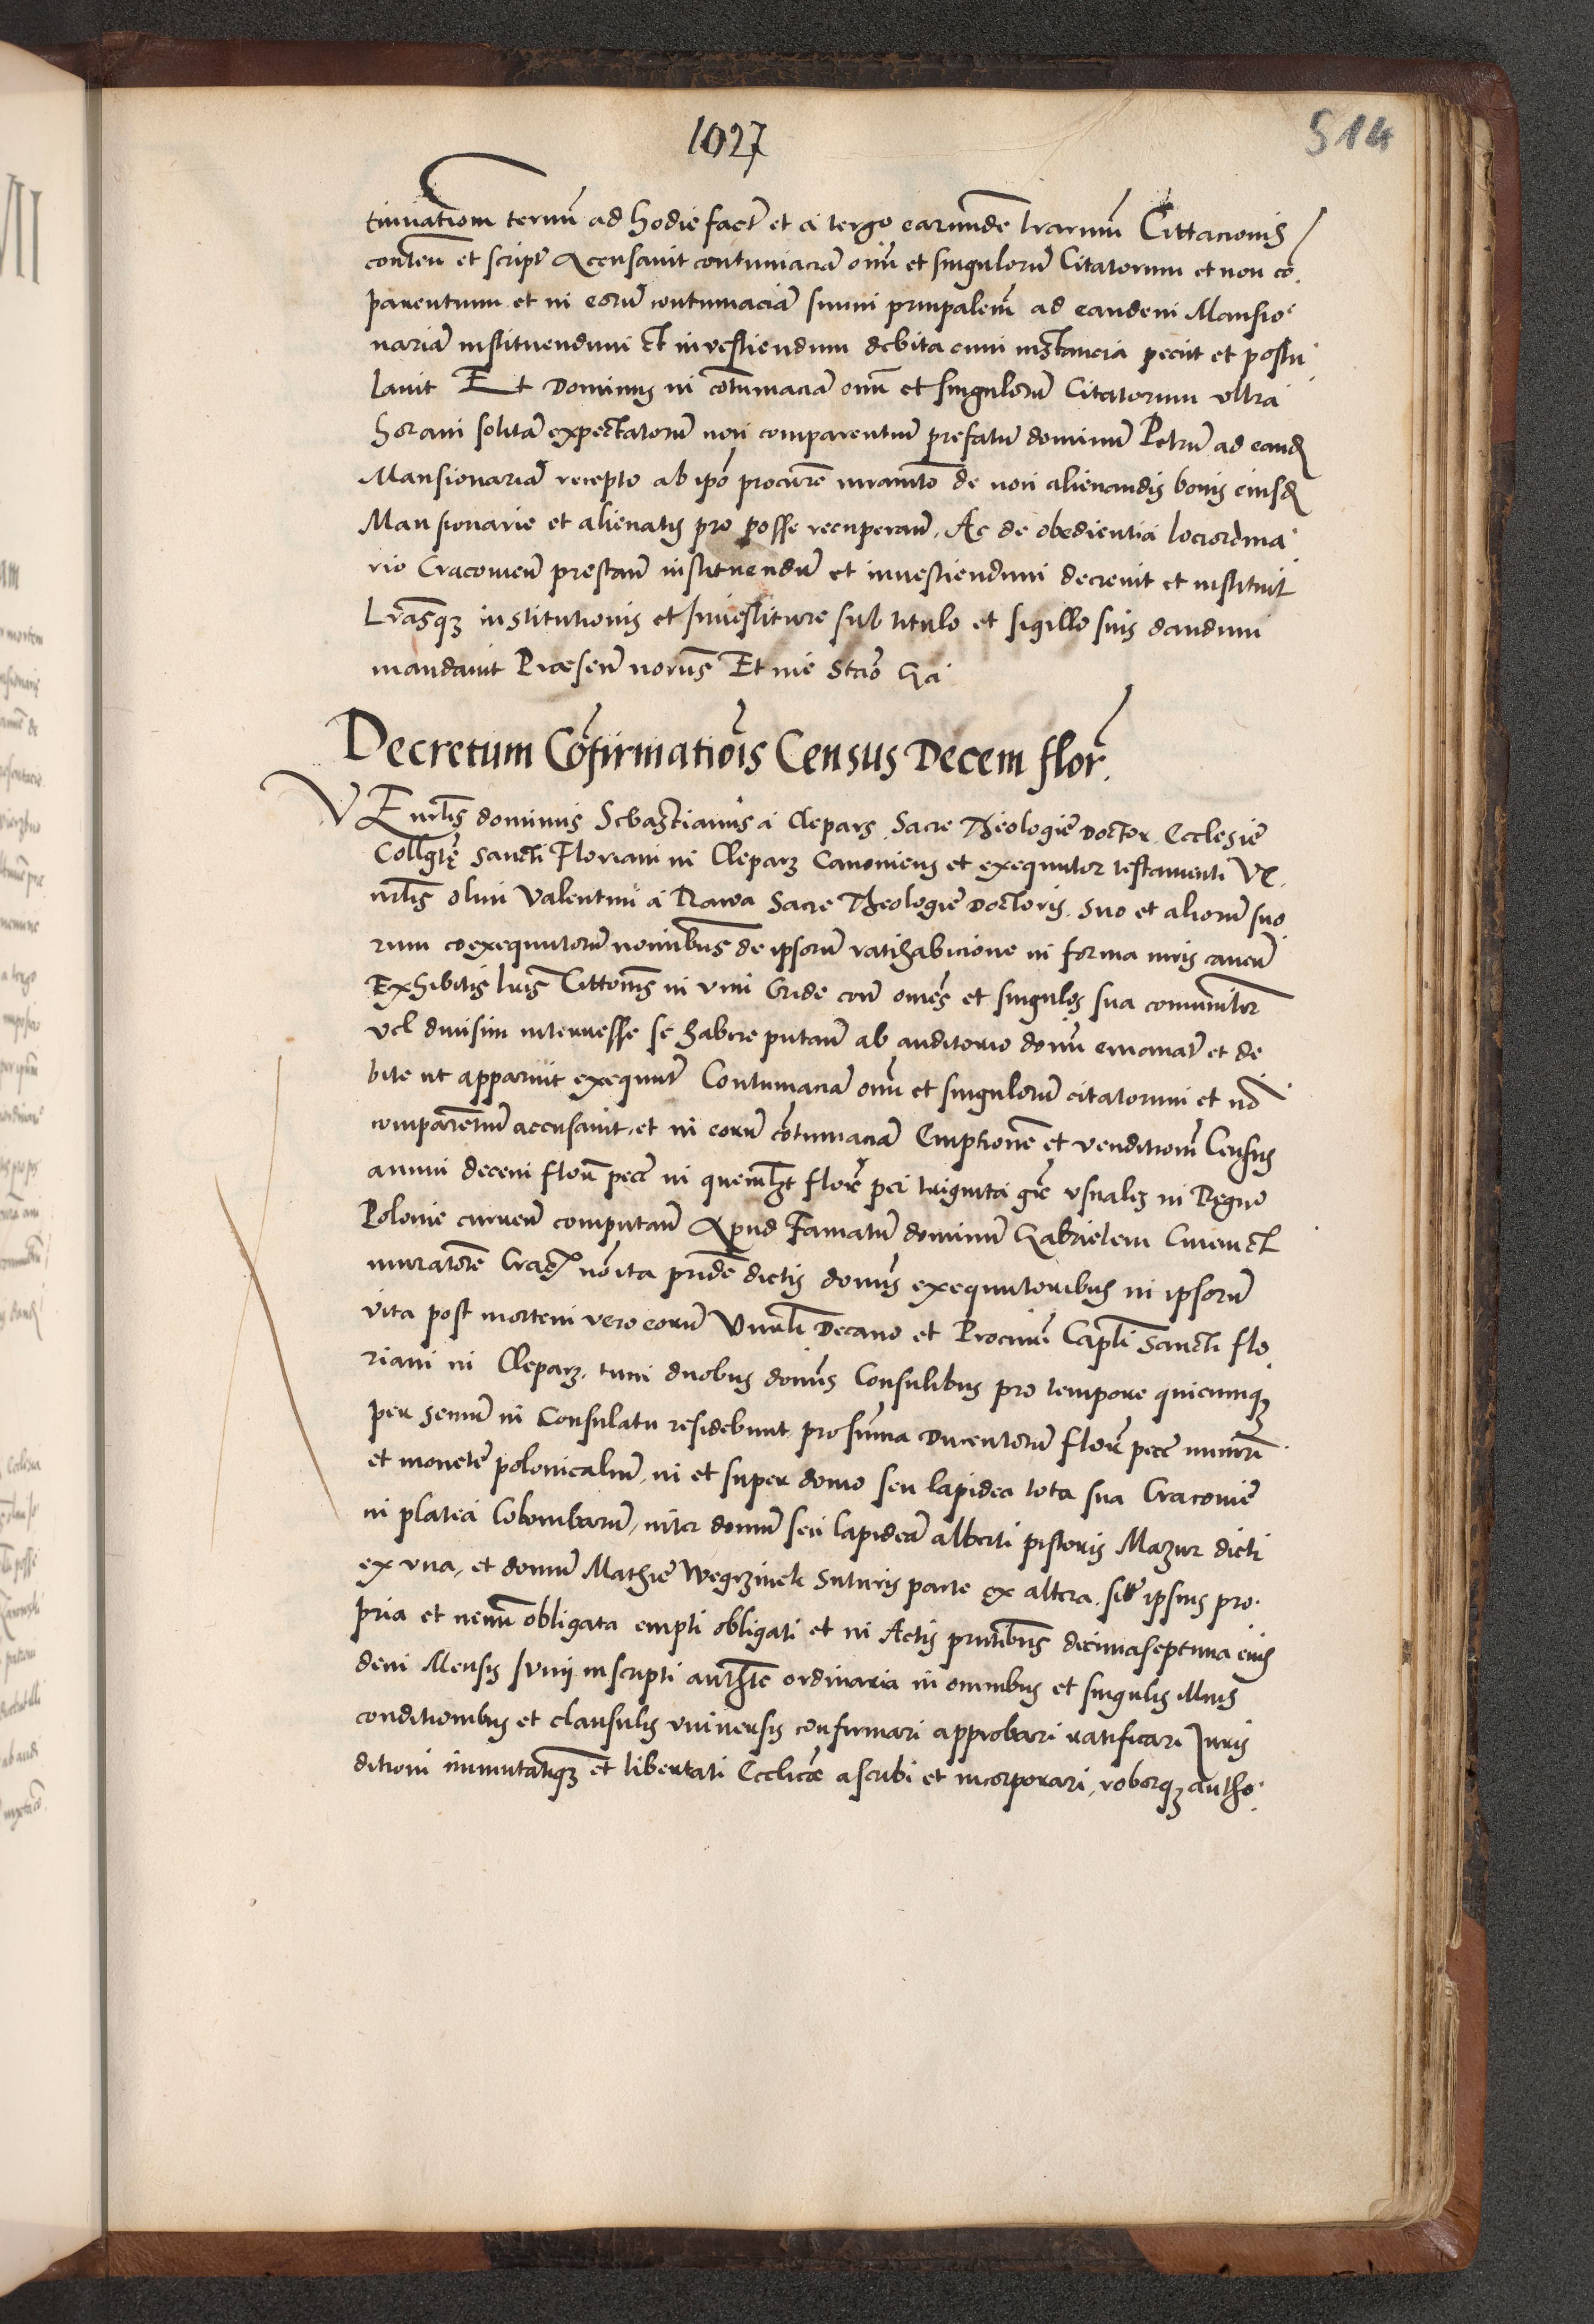 1027
514
tinuationem terminum ad hodie fact et a tergo earumde lrarum Cittacionis
conten et script Accusavit contumacia oim et singulorum Citatorum et non co
parentium et in eoru contumacia suum prinpalem ad eandem Mansio
naria instituendum et investiendum debita cum instancia peciit et postu
lavit Et Dominus in cotumacia oim et singuloru Citatorum vltra
horam solita expectatoru non comparentiu prefatu dominu Petru ad eand
Mansionaria recepto ab ipo procure iuramto de non alienandis bonis eiusd
Mansionarie et alienatis pro posse recuperan. Ac de obedientia loci ordina
rio Cracovien prestan instituendu et investiendum decrevit et instituit
Lrasq institutionis et Investiture sub titulo et sigillo suis dandum
mandavit Præsen norus Et me Stao Ga
Decretum Cofirmatiois Census Decem flor
VEnrlis dominus Sebastianus a Clepars Sacre Theologie Doctor Ecclesie
Collgte Sancti Floriani in Cleparz Canonicus et exequutor testamenti Ve
nrlis olim Valentini a Rawa Sacre Theologie Doctoris suo et alioru suo
rum coexequutoru nominibus de ipsoru ratihabicione in forma iuris caven
Exhibitis lris Cittonis in vim Cride con omes et singulos sua comuniter
vel divisim interesse se habere putan ab auditorio domi emanat et de
bite ut apparuit exequut Contumacia oim et singuloru citatorum et no
comparentiu accusavit et in eoru cotumacia Emptione et venditiom Census
annui decem floru pece in quemlzt flore per triginta gre vsuales in Regno
Polonie curren computan Apud Famatu dominu Gabrielem
muratore Crac no ita pride dictis domis exequutoribus in ipsoru
vita post mortem vero eoru Vnrli Decano et Procuri Capli Sancti flo
riani in Cleparz tum duobus domis Consulibus pro tempore quicumq
per semu in Consulatu residebunt pro suma Ducentoru flore pece numeri
et monete polonicaliu in et super domo seu lapidea tota sua Cracovie
in platea Colombaru inter domu seu lapidea alberti pistoris Mazur dicti
ex vna et domu Mathie Wegrzinek Sutoris parte ex altera sit ipsius pro
pria et nemi obligata empti obligati et in Actis prntibus decimaseptima eius
dem Mensis Iunij inscripti authte ordinaria in omnibus et singulis illius
conditionibus et clausulis vniversis confirmari approbari ratificari Iuris
ditioni immunitatiq et libertati Ecclice ascribi et incorporari roborq autho